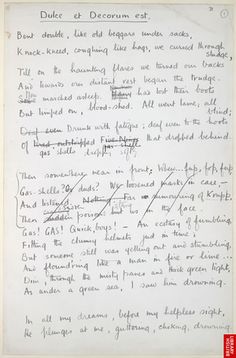 Dulce et Decorum est.
Bent double, like old beggars under sacks,
Knock-kneed, coughing like hags, we cursed through sludge,
Till on the haunting flares we turned our backs
And towards our distant rest began to trudge.
marched asleep. Many has lost their boots
But limped on, blood-shod. All went lame, all blind;
Drunk with fatigue; deaf even to the hoots
Of Five-Nines that dropped behind.
gas shells
Then somewhere near in front; Whew... fup, fop, fup,
Gas shells? Or duds? We loosened masks in case —
And listened. Nothing. Far rumouring of Krupp.
Then poison hit us in the face.
Gas! GAS! Quick, boys! — An ecstasy of fumbling
Fitting the clumsy helmets just in time;
But someone still was yelling out and stumbling,
And flound'ring like a man in fire or lime...
Dim, through the misty panes and thick green light,
As under a green sea, I saw him drowning.
In all my dreams, before my helpless sight,
He plunges at me, guttering, choking, drowning.
BRITISH LIBRARY